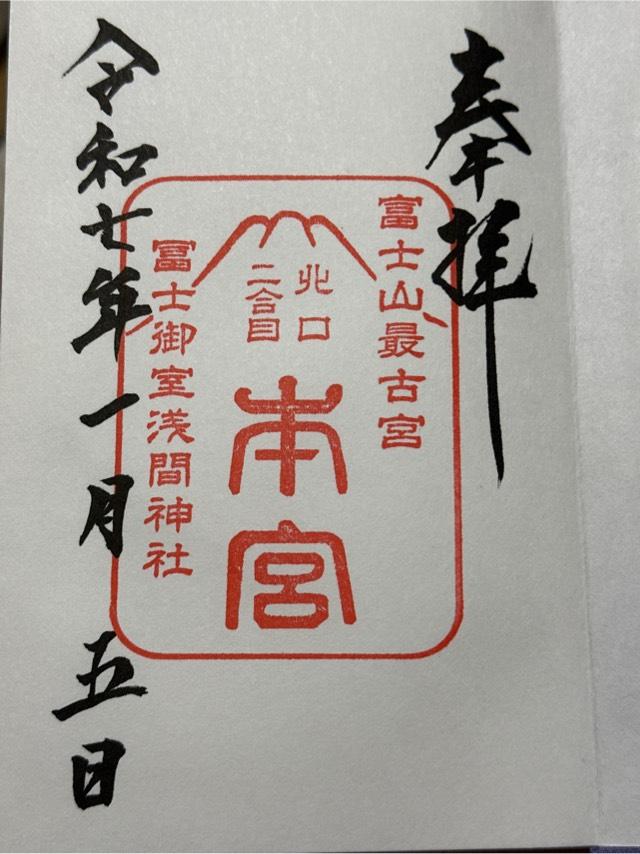 奉拝
富士山最古宮
北口
二合目
本宮
冨士御室浅間神社
令和七年一月五日